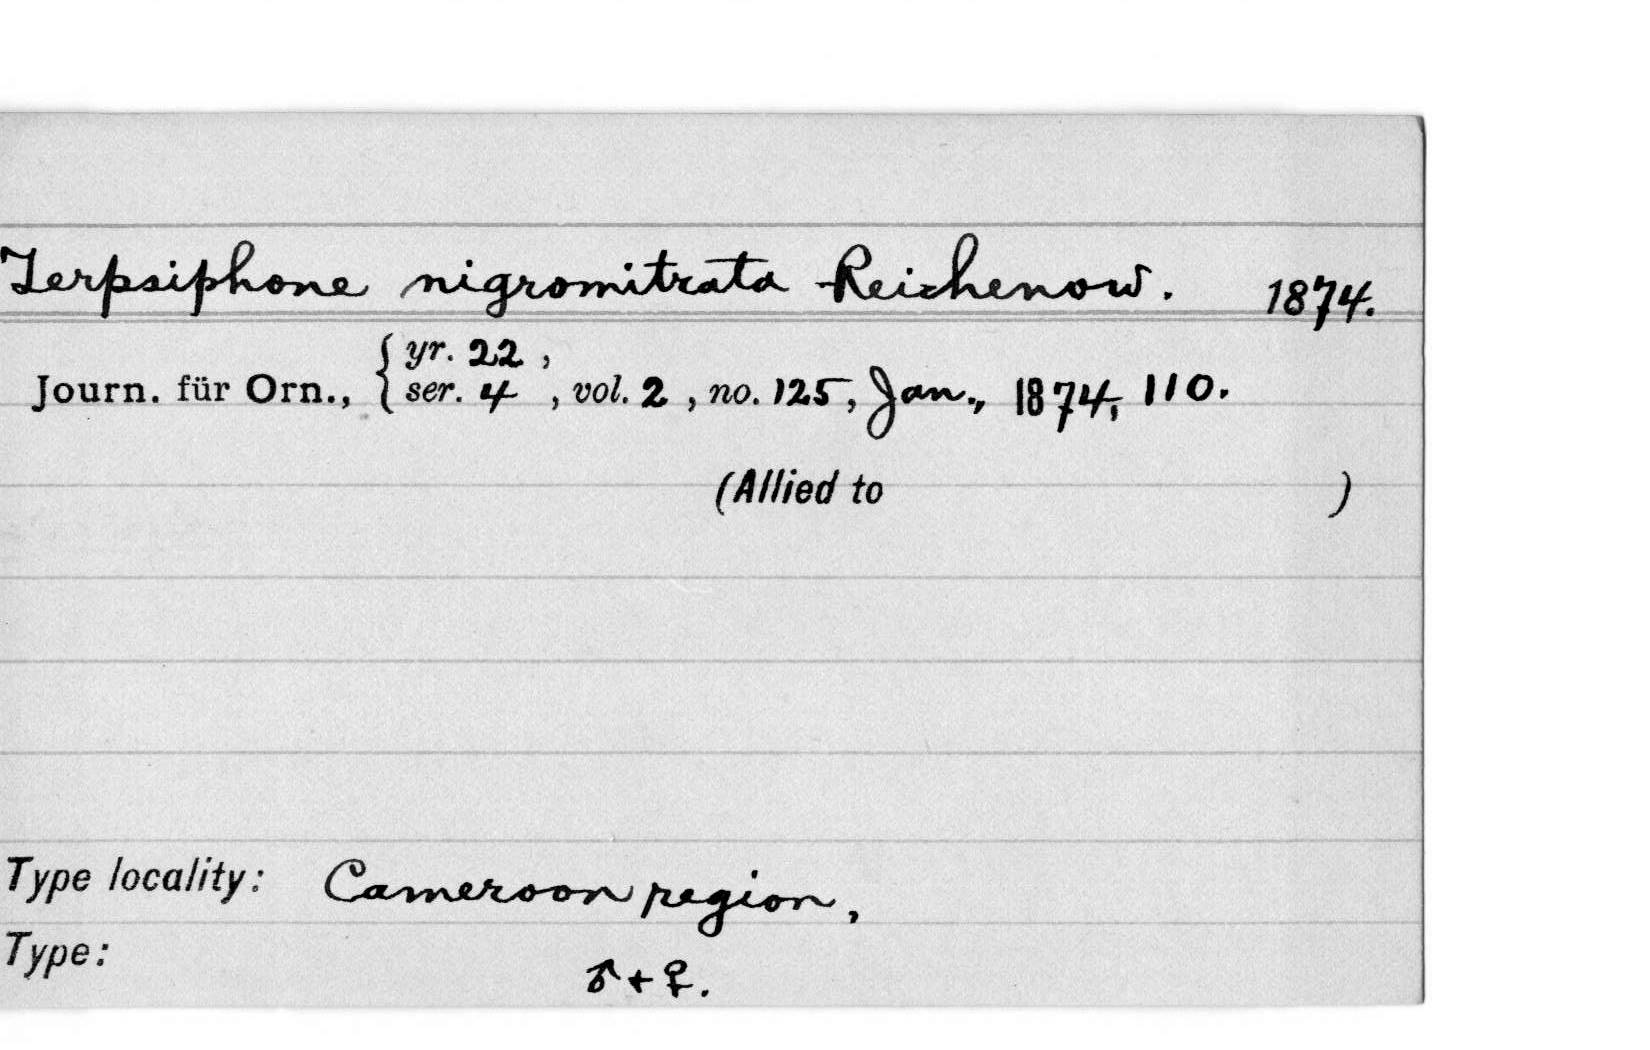 Terpsiphone nigromitrata Reichenow. 1874.
Journ. für Orn., { yr. 22 ,
ser. 4 , vol. 2 , no. 125, Jan., 1874, 110.
(Allied to )
Type locality: Cameroon region,
Type: ♂ + ♀.